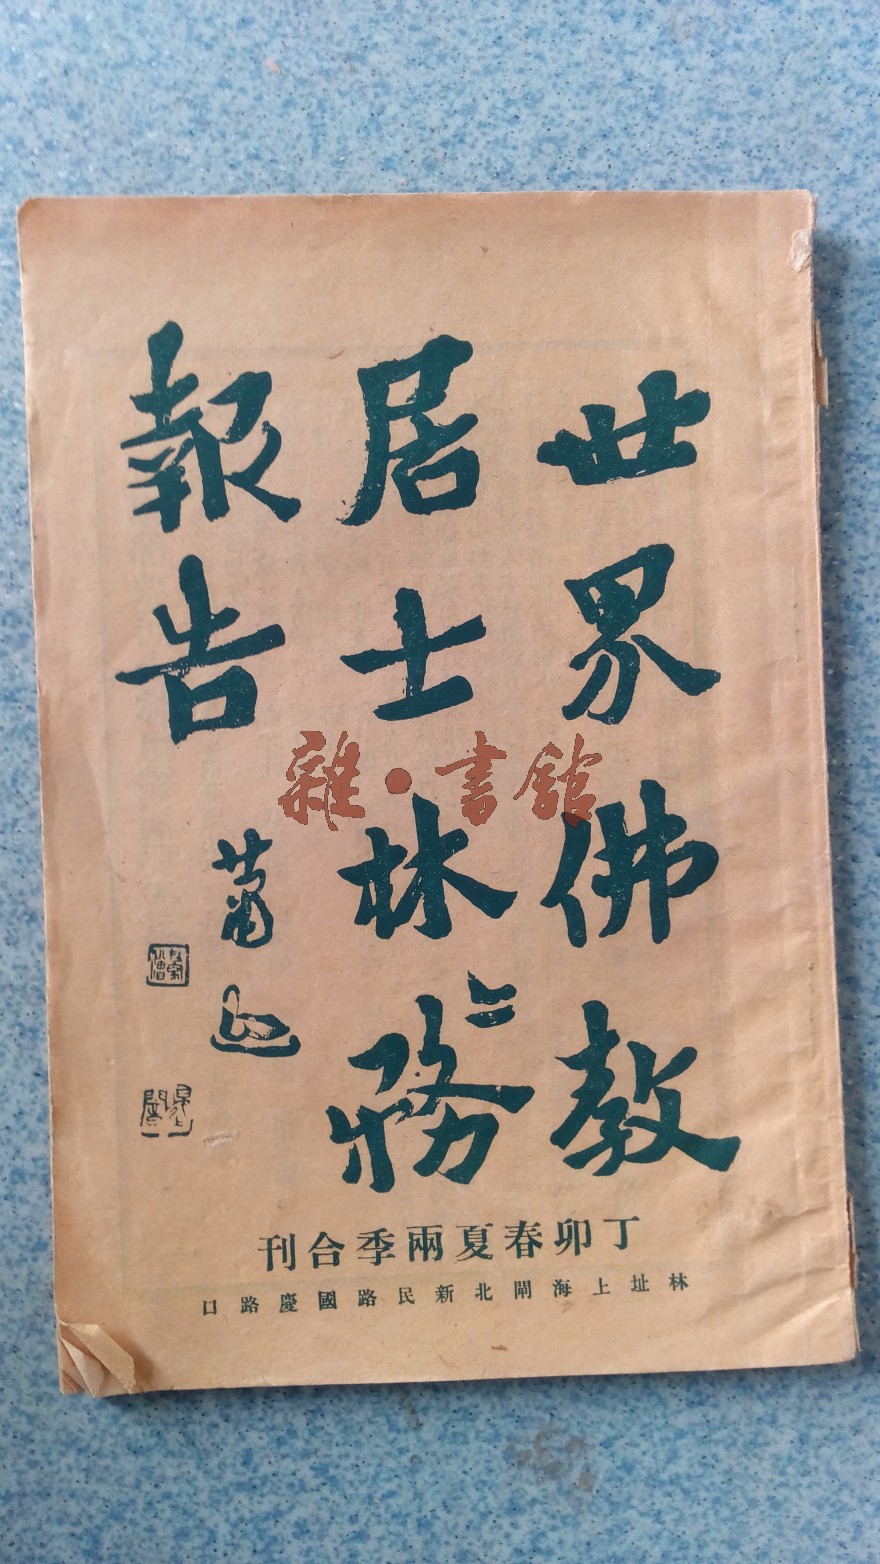 世界佛教
居士林〻務
報告
蕭退
丁卯春夏兩季合刊
林址上海閘北新民路國慶路口
雜·書館